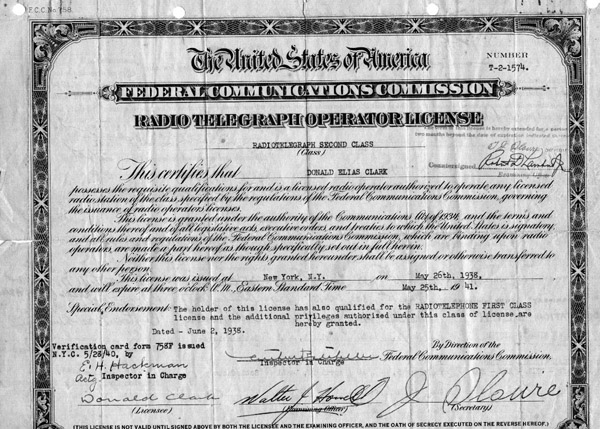 F.C.C. No. 758
The United States of America
NUMBER
T-2-1574.
FEDERAL COMMUNICATIONS COMMISSION
RADIO TELEGRAPH OPERATOR LICENSE
RADIOTELEGRAPH SECOND CLASS
(Class)
Countersigned
This certifies that DONALD ELIAS CLARK
possesses the requisite qualifications for and is a licensed radio operator authorized to operate any licensed
radio station of the class specified by the regulations of the Federal Communications Commission, governing
the issuance of radio operators licenses.
This license is granted under the authority of the Communications Act of 1934, and the terms and
conditions thereof and of all legislative acts, executive orders, and treaties to which the United States is signatory,
and all rules and regulations of the Federal Communications Commission, which are binding upon radio
operators, are made a part hereof as though specifically set out in full herein.
Neither this license nor the rights granted hereunder shall be assigned or otherwise transferred to
any other person.
This license was issued at New York, N.Y. on May 26th, 1938,
and will expire at three o'clock A.M. Eastern Standard Time May 25th, 1941.
Special Endorsement: The holder of this license has also qualified for the RADIOTELEPHONE FIRST CLASS
license and the additional privileges authorized under this class of license, are
hereby granted.
Dated - June 2, 1938.
Verification card form 758F issued
N.Y.C. 5/28/40, by
E. H. Hackman
Actg Inspector in Charge
Inspector in Charge
By Direction of the
Federal Communications Commission,
Donald Clark
(Licensee)
(Examining Officer)
(Secretary)
(THIS LICENSE IS NOT VALID UNTIL SIGNED ABOVE BY BOTH THE LICENSEE AND THE EXAMINING OFFICER, AND THE OATH OF SECRECY EXECUTED ON THE REVERSE HEREOF.)